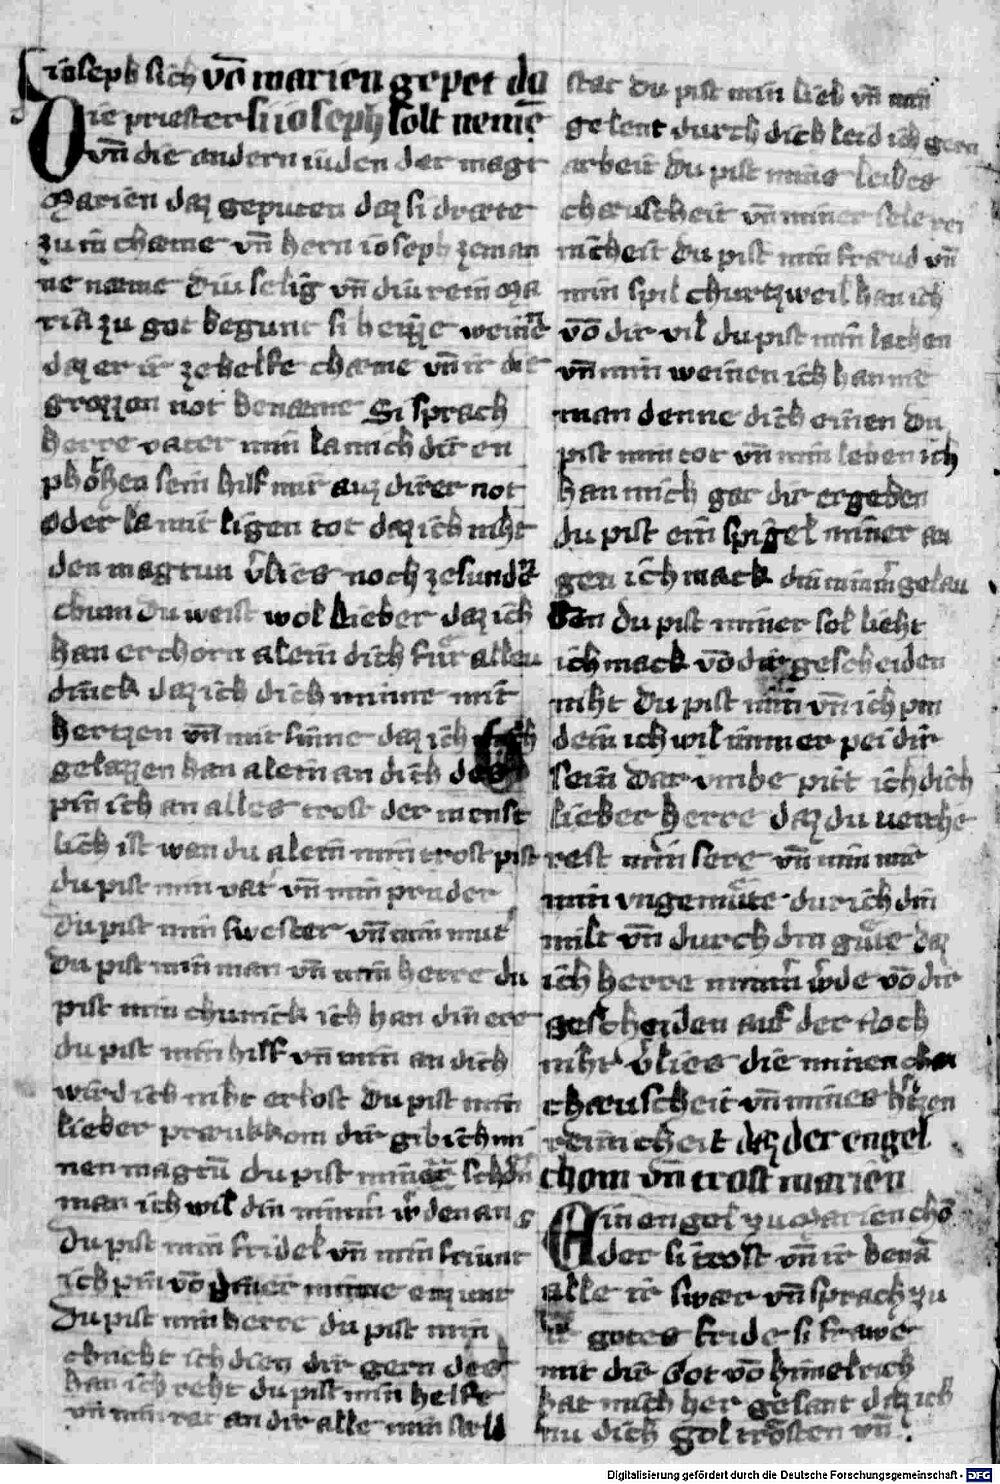 ioseph sich vō marien gepet da
Die priester si ioseph solt nemē
vn̄ die andern iuden der magt
Marien daz geputen daz si dræte
zu in chæme vn̄ hern ioseph zeman
ne næme Diu selig vn̄ diu rein Ma
ria zu got begunt si heizze weinē
daz er ir zehelfe chæme vn̄ ir die
grozzen not benæme Si sprach
herre vater min la mich dir en
pholhen sein hilf mir auz direr not
oder la mit ligen tot daz ich niht
den magtun vlies noch ze sunden
chum Du weist wol lieber daz ich
han erchorn alein dich fur allen
dinck daz ich dich minne mit
hertzen vn̄ mit sinne daz ich
gelazzen han alein an dich des
pin ich an alles trost der mensch
lich ist wan du alein min trost pist
du pist min vat vn̄ min pruder
Du pist min swester vn̄ min mut
Du pist min man vn̄ min herre du
pist min chunick ich han din ere
du pist min hilf vn̄ min an dich
wird ich niht erlost Du pist min
lieber dir gib ich mi
nen magtū du pist min schōn
man ich wil din nimm wdenan
Du pist min fridel vn̄ min friunt
ich pin vō diner minne enzunt
Du pist min herre du pist min
chneht ich dien dir gern des
han ich reht du pist min helfe
vn̄ min rat an dir alle min
stat Du pist min lieb vn̄ min
gelent durch dich leid ich gern
arbeit Du pist mins leibes
chæuscheit vn̄ miner sele rei
nicheit Du pist min fræud vn̄
min spil churtzweil han ich
vō dir vil du pist min lachen
vn̄ min weinen ich han me
man denne dich einen Du
pist min tot vn̄ min leben ich
han mich gar dir ergeben
du pist ein spigel miner au
gen ich mack din nimm gelau
ben Du pist miner sol lieht
ich mack vō dir gescheiden
niht Du pist min vn̄ ich pin
dein ich wil immer pei dir
sein Dar vmbe pitt ich dich
lieber herre daz du verche
rest min sere vn̄ min
min vngemute durich din
milt vn̄ durch din gute Daz
ich herre nimm wde vō dir
gescheiden auf der noch
niht vlies die minen
chæuscheit vn̄ mines htzen
reinicheit daz der engel
chom vn̄ trost marien
Ein engel zu Marien chō
der si trost vn̄ ir benā
alle ir swær vn̄ sprach zu
ir gotes fride si frawe
mit dir Got vō himelrich
hat mich her gesant daz ich
nu dich sol trosten vn̄
Digitalisierung gefördert durch die Deutsche Forschungsgemeinschaft - DFG